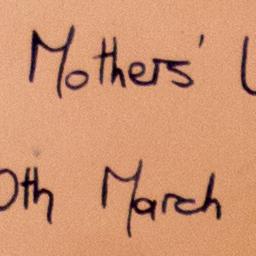 Mothers'
0th March